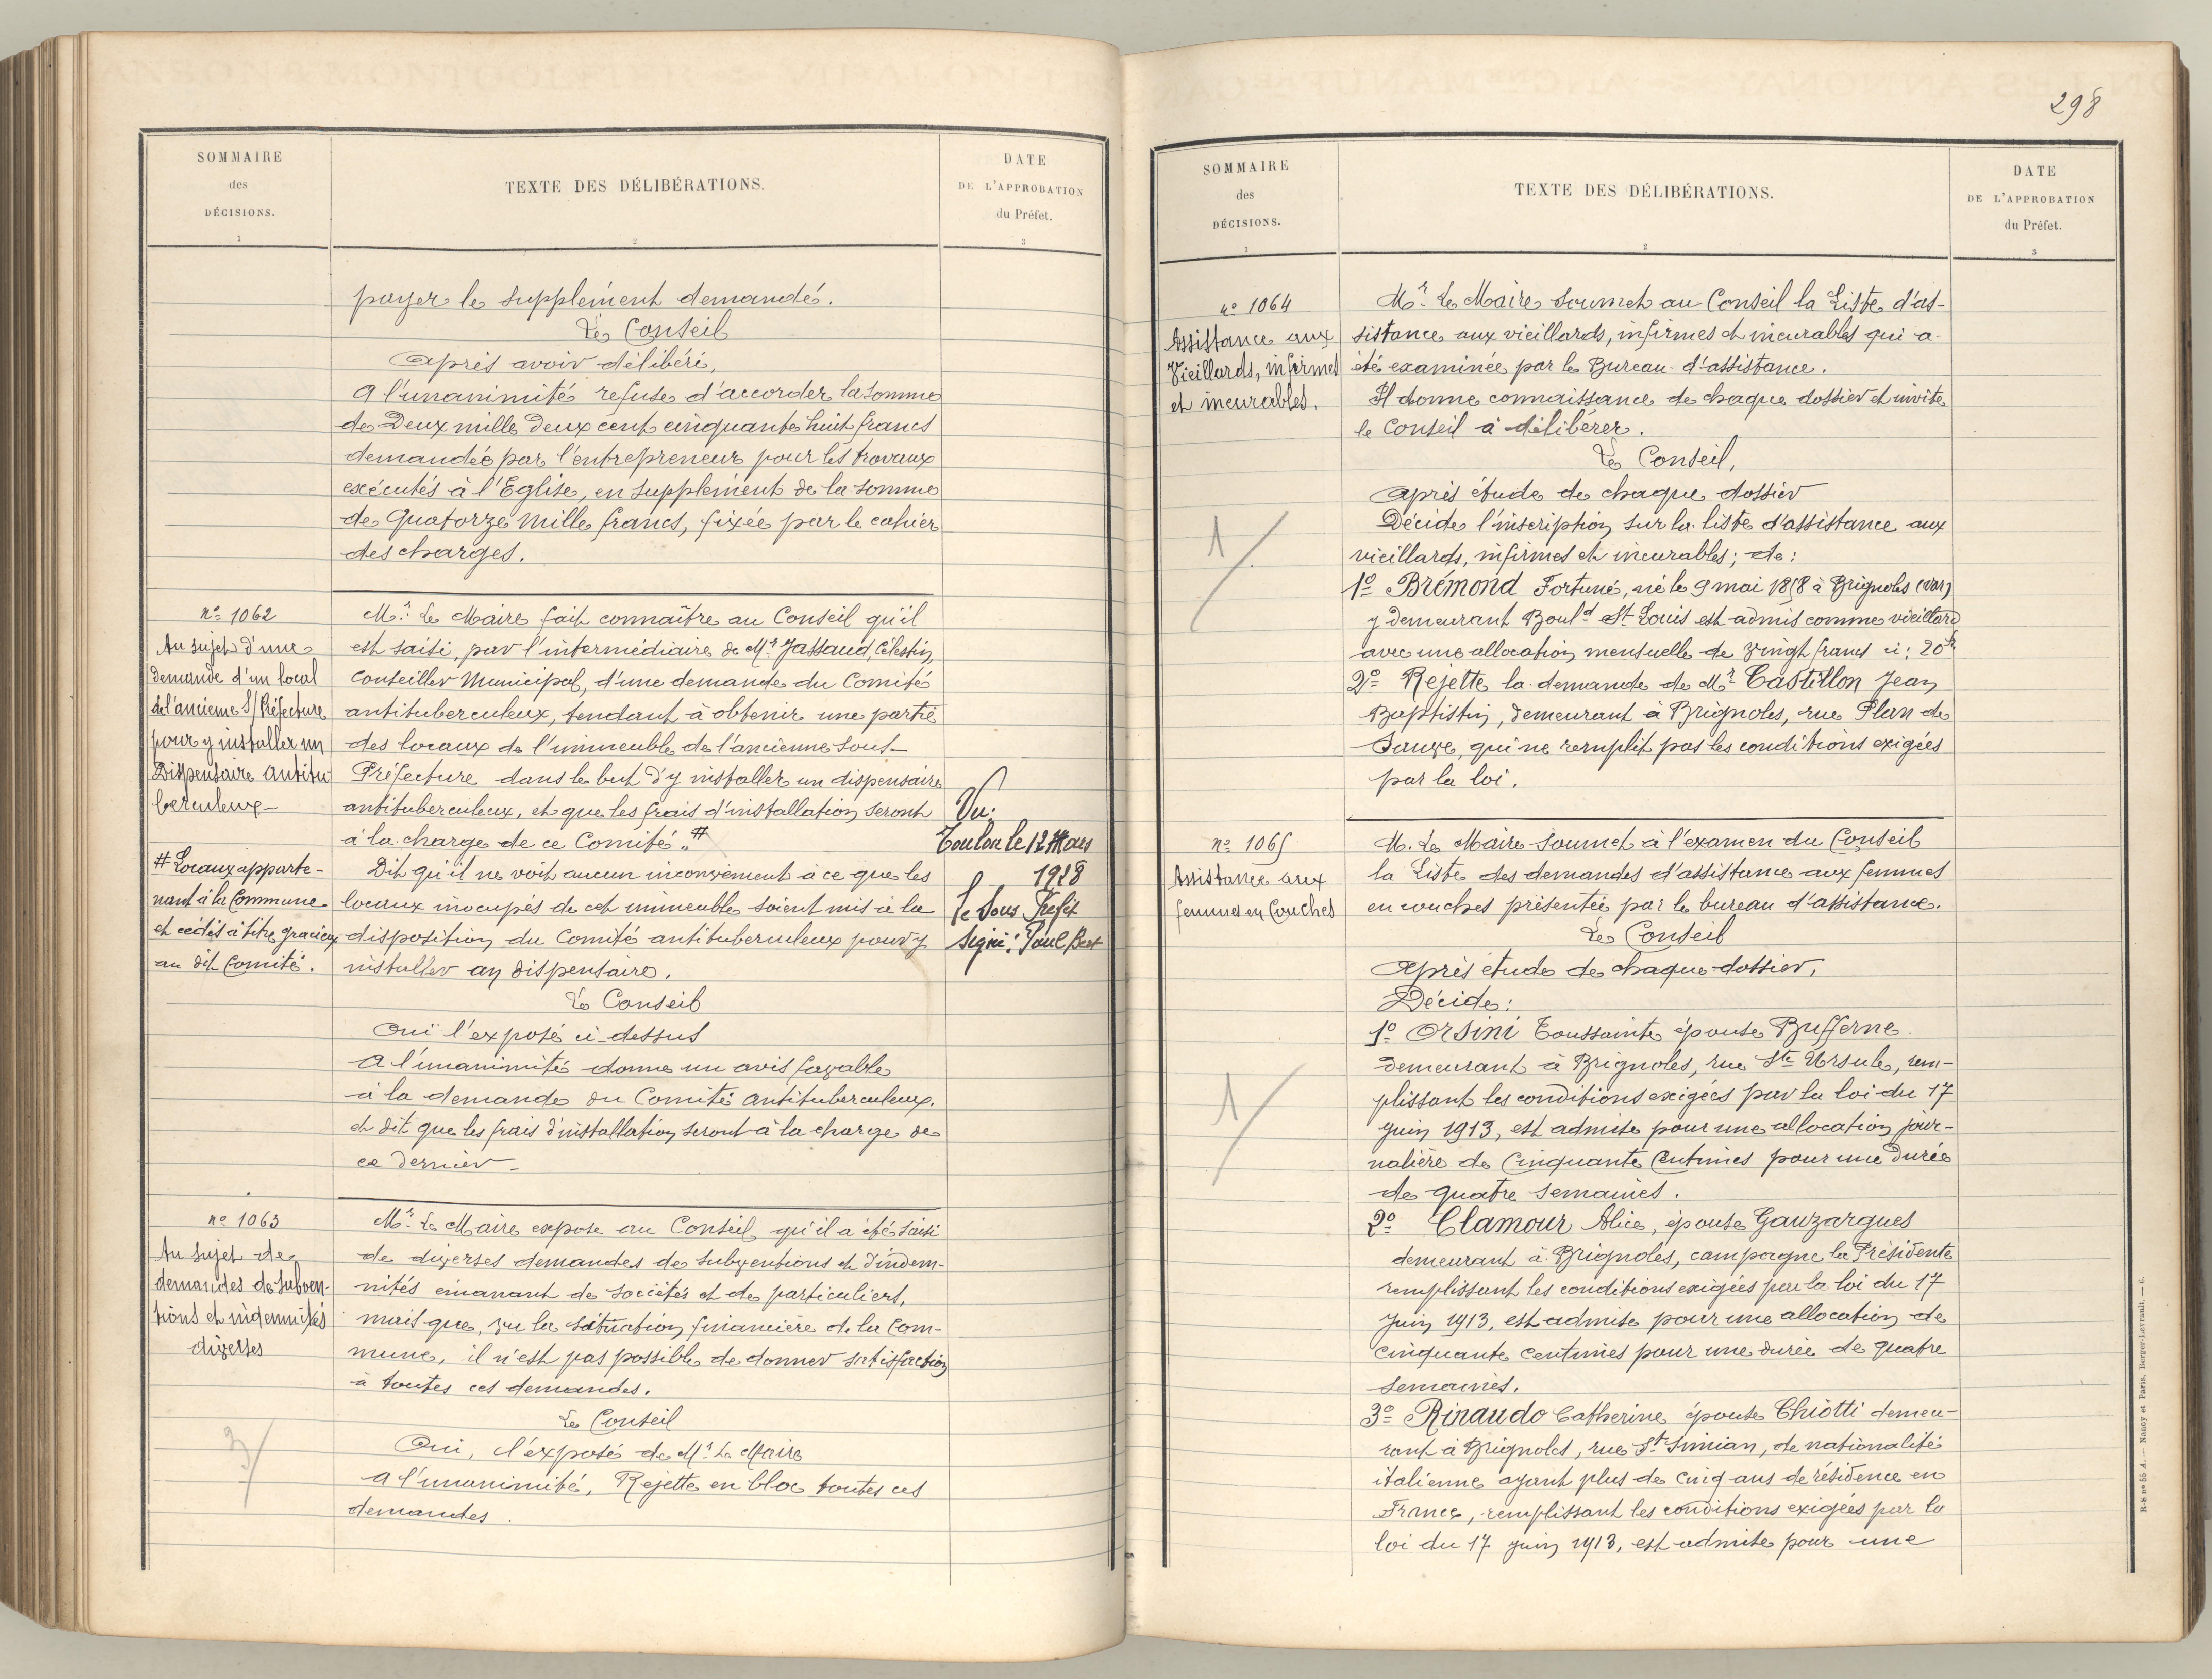 SOMMAIRE
des
DÉCISIONS.
1
TEXTE DES DÉLIBÉRATIONS.
2
DATE
DE L'APPROBATION
du Préfet.
3
payer le supplément demandé.
Le Conseil
Après avoir délibéré,
A l'unanimité refuse d'accorder la somme
de Deux mille Deux cent cinquante huit francs
demandée par l'entrepreneur pour les travaux
exécutés à l'Eglise, en supplément de la somme
de Quatorze Mille francs, fixée par le cahier
des charges.
nº 1062
Au sujet d'une
demande d'un local
de l'ancienne S/Préfecture
pour y installer un
Dispensaire Antitu
berculeux
# Locaux apparte-
nant à la Commune
et cédés à titre gracieux
au dit Comité.
Mr. Le Maire fait connaître au Conseil qu'il
est saisi, par l'intermédiaire de Mr. Jassaud, Célestin,
Conseiller Municipal, d'une demande du Comité
antituberculeux, tendant à obtenir une partie
des locaux de l'immeuble de l'ancienne Sous-
Préfecture dans le but d'y installer un dispensaire
antituberculeux, et que les frais d'installation seront
à la charge de ce Comité. #
Dit qu'il ne voit aucun inconvénient à ce que les
locaux inocupés de cet immeuble soient mis à la
disposition du Comité antituberculeux pour y
installer un dispensaire.
Le Conseil
Ouï l'exposé ci-dessus
A l'unanimité donne un avis favorable
à la demande du Comité Antituberculeux.
et dit que les frais d'installation seront à la charge de
ce dernier
Vu:
Toulon le 12 Mars
1928
Le Sous Préfet
Signé: Paul Bert
nº 1063
Au sujet de
demandes de subven-
tions et indemnités
diverses
3/
Mr. Le Maire expose au Conseil qu'il a été saisi
de diverses demandes de subventions et d'indem-
nités émanant de sociétés et de particuliers,
mais que, vu la situation financière de la Com-
mune, il n'est pas possible de donner satisfaction
à toutes ces demandes.
Le Conseil
Oui, l'exposé de Mr. Le Maire
A l'unanimité, Rejette en bloc toutes ces
demandes.
298
SOMMAIRE
des
DÉCISIONS.
1
TEXTE DES DÉLIBÉRATIONS.
2
DATE
DE L'APPROBATION
du Préfet.
3
nº 1064
Assistance aux
Vieillards, infirmes
et incurables.
1/
Mr. Le Maire soumet au Conseil la Liste d'as-
sistance aux vieillards, infirmes et incurables qui a
été examinée par le Bureau d'assistance.
Il donne connaissance de chaque dossier et invite
le Conseil à délibérer.
Le Conseil,
Après étude de chaque dossier
Décide l'inscription sur la liste d'assistance aux
vieillards, infirmes et incurables; de:
1º Brémond Fortuné, né le 9 mai 1858 à Brignoles (Var)
y demeurant Bould St Louis est admis comme vieillard
avec une allocation mensuelle de Vingt francs ci: 20 fr
2º Rejette la demande de Mr. Castillon Jean
Baptistin, demeurant à Brignoles, rue Plan de
Sauve, qui ne remplit pas les conditions exigées
par la loi.
nº 1065
Assistance aux
femmes en Couches
1/
M. Le Maire soumet à l'examen du Conseil
la Liste des demandes d'assistance aux femmes
en couches présentée par le bureau d'assistance.
Le Conseil
Après étude de chaque dossier,
Décide:
1º Orsini Toussainte épouse Bufferne
demeurant à Brignoles, rue Ste Ursule, rem-
plissant les conditions exigées par la loi du 17
Juin 1913, est admise pour une allocation jour-
nalière de Cinquante Centimes pour une durée
de quatre semaines.
2º Clamour Alice, épouse Gauzargues
demeurant à Brignoles, campagne la Présidente
remplissant les conditions exigées par la loi du 17
Juin 1913, est admise pour une allocation de
Cinquante centimes pour une durée de quatre
semaines.
3º Rinaudo Catherine épouse Chiotti demeu-
rant à Brignoles, rue St Simian, de nationalité
italienne ayant plus de cinq ans de résidence en
France, remplissant les conditions exigées par la
loi du 17 juin 1913, est admise pour une
R-8 nº 55 A. — Nancy et Paris, Berger-Levrault. — 6.